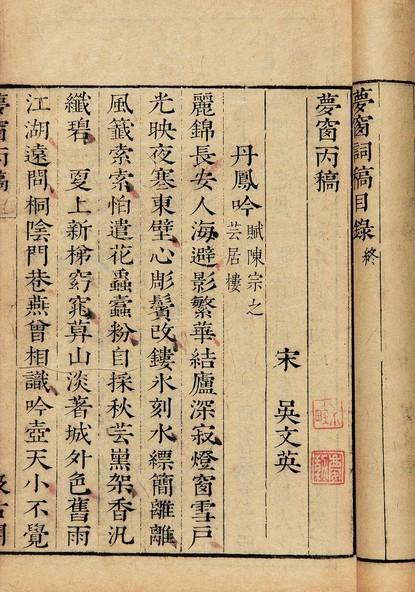 夢窗詞稿目錄 終
夢窗丙稿
宋 吳文英
丹鳳吟 賦陳宗之
芸居樓
麗錦長安人海避影繁華結廬深寂燈窗雪戶
光映夜寒東壁心彫鬢改鏤氷刻水縹簡離離
風籤索索怕遣花蟲蠹粉自採秋芸熏架香汎
纖碧 夏上新梯窈窕暮山淡著城外色舊雨
江湖遠問桐陰門巷燕曾相識吟壺天小不覺
夢窗丙稿